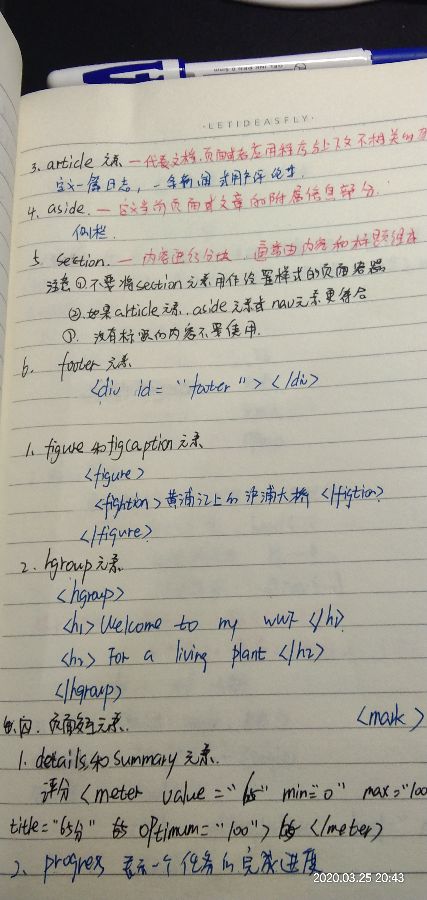 ·LETIDEASFLY·
3. article 元素 — 代表文档、页面或者应用程序与上下文不相关的
定义一篇日志，一条新闻或用户评论等.
4. aside. — 定义当前页面或文章的附属信息部分.
侧栏.
5. section. — 内容进行分块，通常由内容和标题组成
注意 ① 不要将section元素用作设置样式的页面容器
② 如果article元素、aside元素或nav元素更符合
③. 没有标题的内容不要使用.
6. footer 元素
<div id = "footer"> </div>
1. figure 和figcaption元素
<figure>
<fightion>黄浦江上的卢浦大桥 </figtion>
</figure>
2. hgroup元素.
<hgroup>
<h1> Welcome to my WWF </h1>
<h2> For a living plant </h2>
</hgroup>
四. 页面交互元素. <mark>
1. details和summary 元素.
评分 <meter value = "65" min="0" max="100
title="65分" optimum="100"> 65 </meter>
2. progres 表示一个任务的完成进度
2020.03.25 20:43